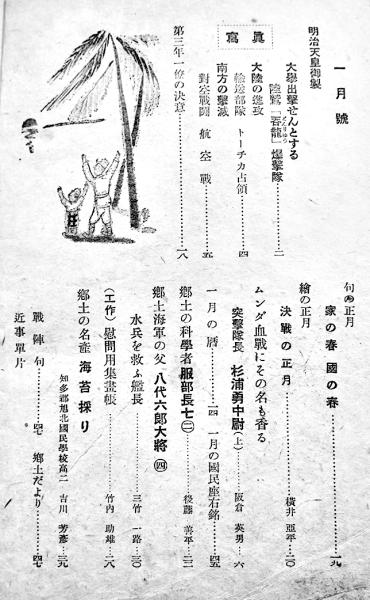 一月號
明治天皇御製
寫眞
大擧出撃せんとする
陸鷲「呑龍」爆撃隊……二
大陸の進攻
輸送部隊 トーチカ占領……四
南方の撃滅
對空戰鬪 航空戰……五
第三年一億の決意……一八
句の正月
家の春 國の春……一九
繪の正月
決戰の正月……横井 亞平…二〇
ムンダ血戰にその名も香る
突撃隊長 杉浦勇中尉(上)……阪倉 英男…六
一月の暦……一四 一月の國民座右銘……四五
郷土の科學者 服部長七(二)……後藤 善平…二二
郷土海軍の父 八代六郎大將(四)
水兵を救ふ艦長……三竹 一路…三〇
(工作) 慰問用集畫帳……竹内 助雄…二八
郷土の名産 海苔採り
知多郡旭北國民學校高二 吉川 芳彦…三九
戰陣句……四七 郷土だより……四七
近事單片